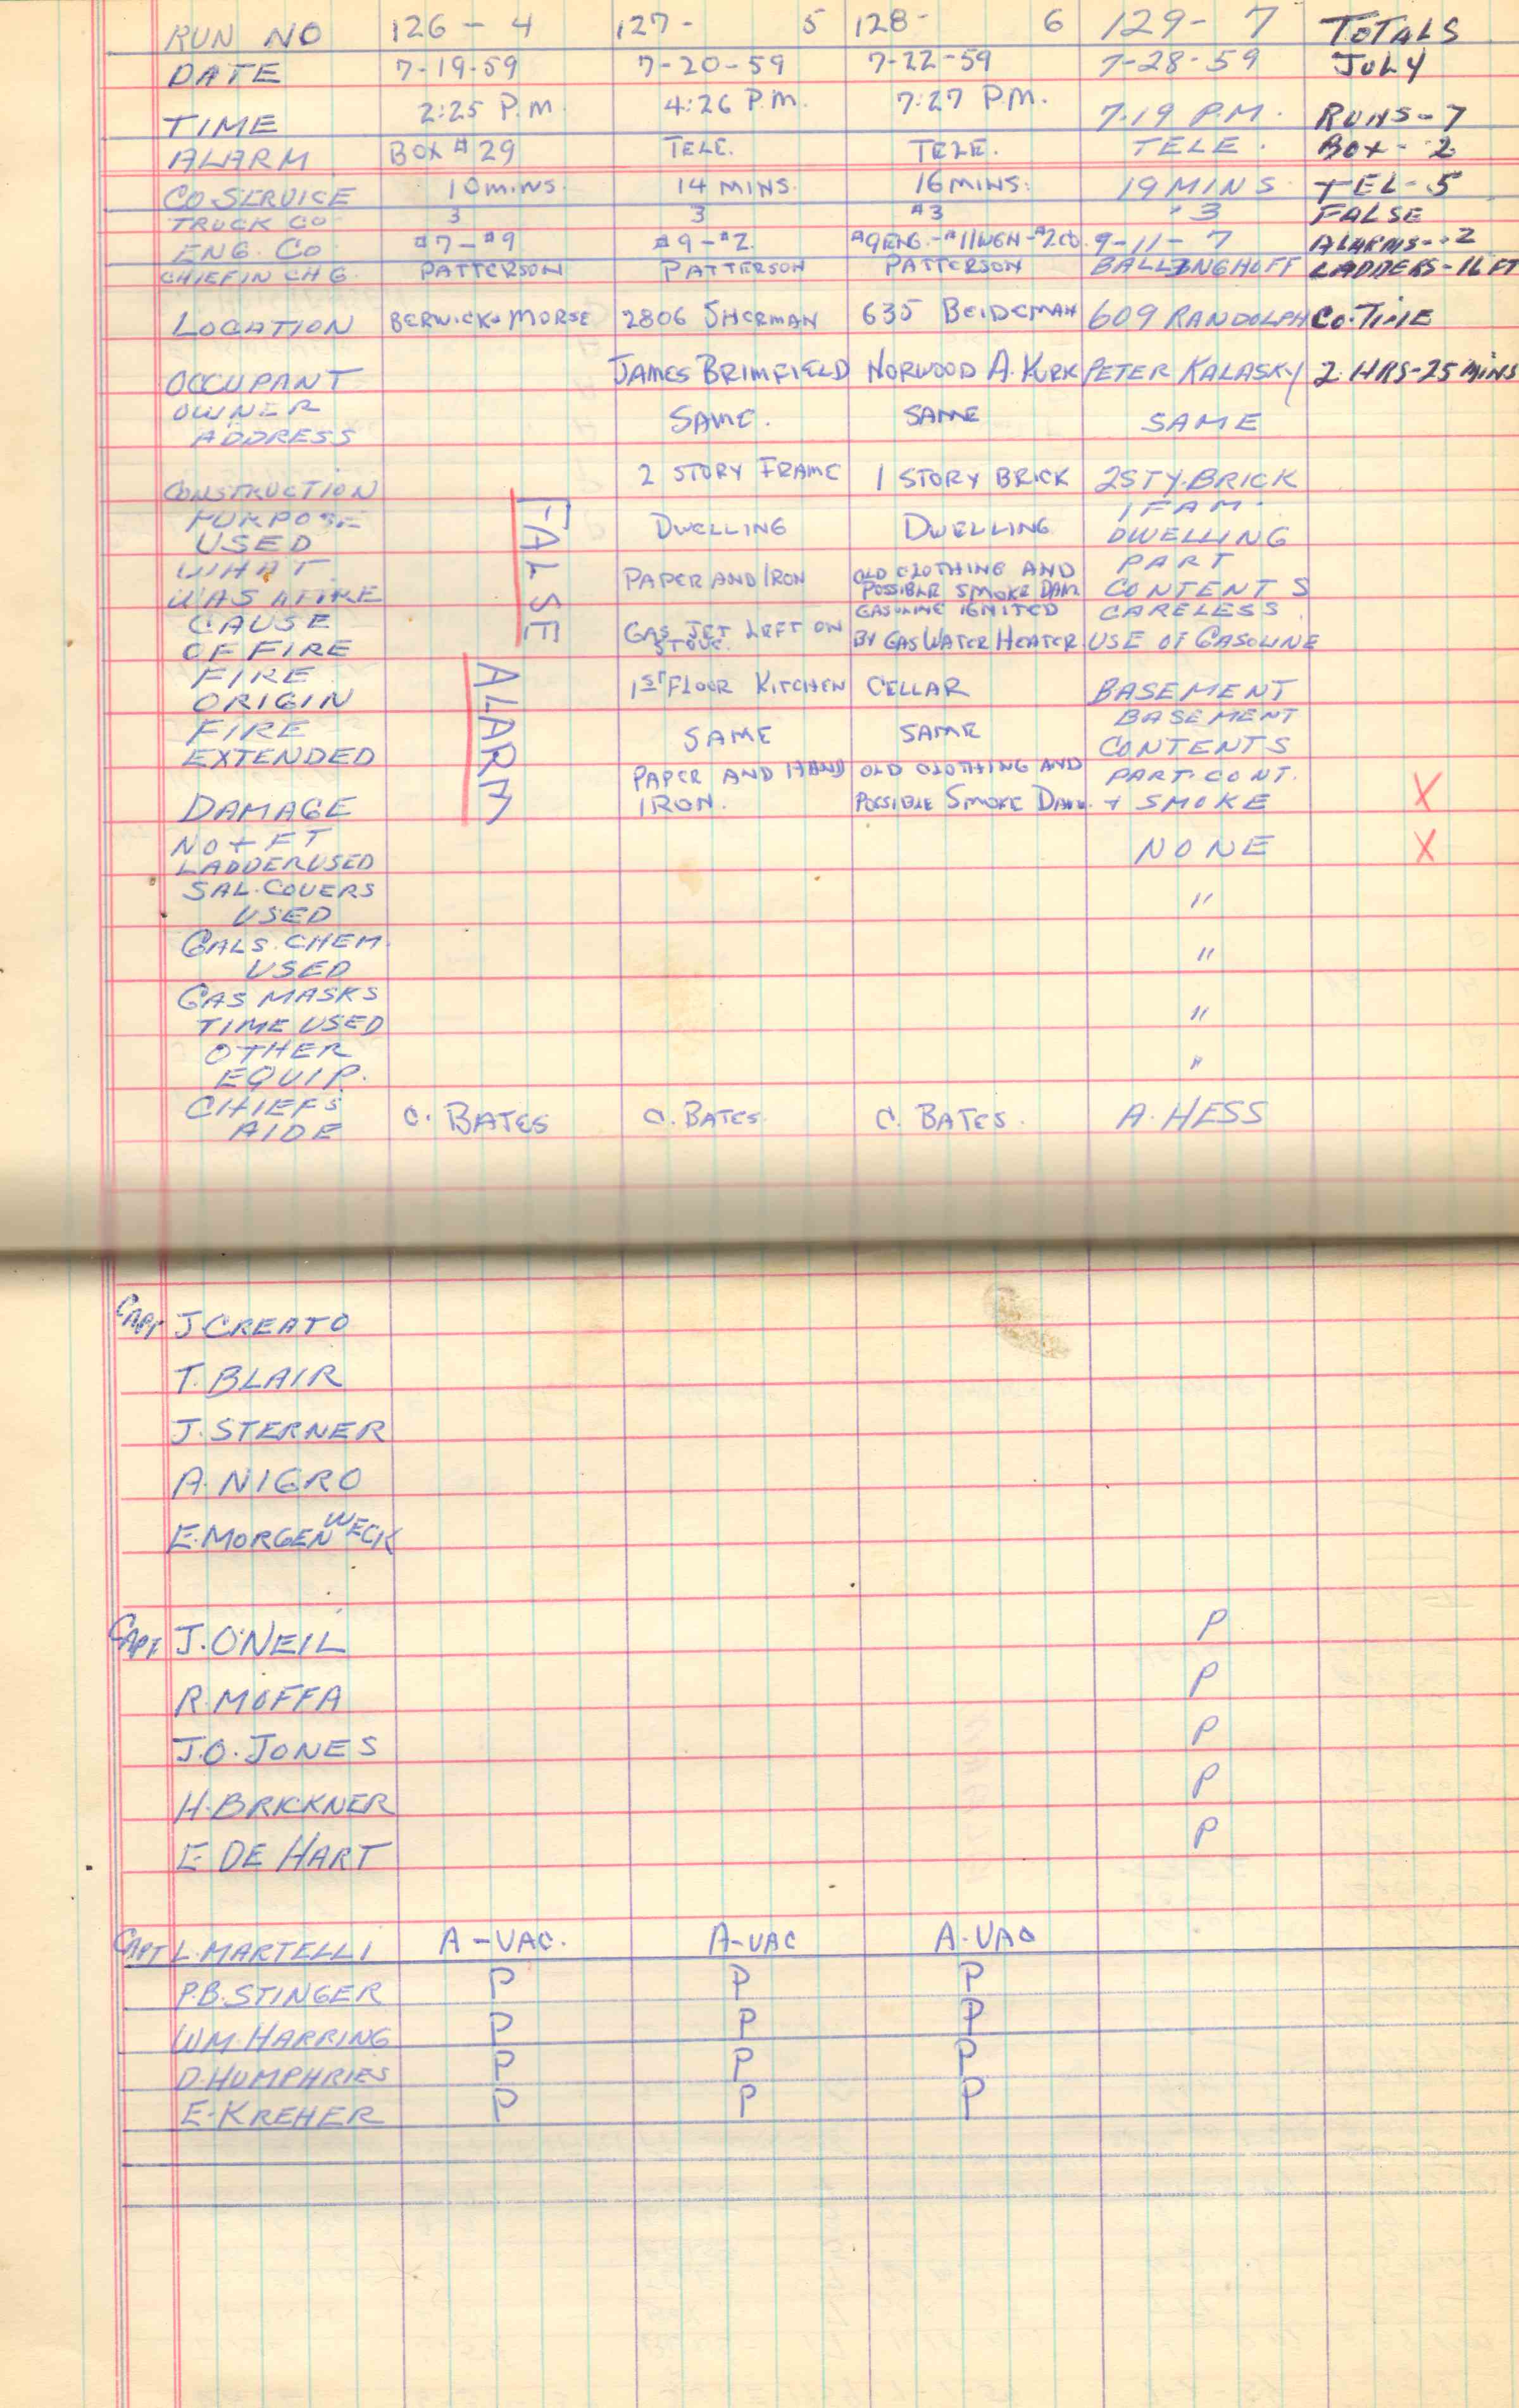 RUN NO 126 - 4 127- 5 128- 6 129- 7 TOTALS
DATE 7-19-59 7-20-59 7-22-59 7-28-59 JULY
TIME 2:25 P.M 4:26 P.M. 7:27 P.M. 7.19 P.M. RUNS-7
ALARM BOX #29 TELE. TELE. TELE. BOX-2
CO SERVICE 10 mins. 14 MINS. 16 MINS. 19 MINS TEL-5
TRUCK CO 3 3 #3 3 FALSE
ENG. CO #7-#9 #9-#2 #9 ENG.-#11 WGN-#2CO. 9-11-7 ALARMS--2
CHIEF IN CHG. PATTERSON PATTERSON PATTERSON BALLINGHOFF LADDERS-16 FT
LOCATION BERWICK & MORSE 2806 SHERMAN 635 BEIDEMAN 609 RANDOLPH CO.TIME
OCCUPANT JAMES BRIMFIELD NORWOOD A. KURK PETER KALASKY 2 HRS-25 MINS
OWNER
ADDRESS SAME. SAME SAME
CONSTRUCTION 2 STORY FRAME 1 STORY BRICK 2 STY. BRICK
PURPOSE
USED DWELLING DWELLING 1 FAM.
DWELLING
WHAT
WAS AFIRE PAPER AND IRON OLD CLOTHING AND
POSSIBLE SMOKE DAM. PART
CONTENTS
CAUSE
OF FIRE GAS JET LEFT ON
STOVE. GASOLINE IGNITED
BY GAS WATER HEATER. CARELESS
USE OF GASOLINE
FIRE
ORIGIN 1ST FLOOR KITCHEN CELLAR BASEMENT
FIRE
EXTENDED SAME SAME BASEMENT
CONTENTS
DAMAGE PAPER AND HAND
IRON. OLD CLOTHING AND
POSSIBLE SMOKE DAM. PART. CONT.
+ SMOKE X
FALSE
ALARM
NO + FT
LADDER USED NONE X
SAL. COVERS
USED "
GALS. CHEM
USED "
GAS MASKS
TIME USED "
OTHER
EQUIP. "
CHIEFS
AIDE C. BATES C. BATES. C. BATES. A. HESS
CAPT J. CREATO
T. BLAIR
J. STERNER
A. NIGRO
E. MORGENWECK
CAPT J. O'NEIL P
R. MOFFA P
J.O. JONES P
H. BRICKNER P
E. DE HART P
CAPT L. MARTELLI A-VAC. A-VAC A-VAC
P.B. STINGER P P P
WM. HARRING P P P
D. HUMPHRIES P P P
E. KREHER P P P